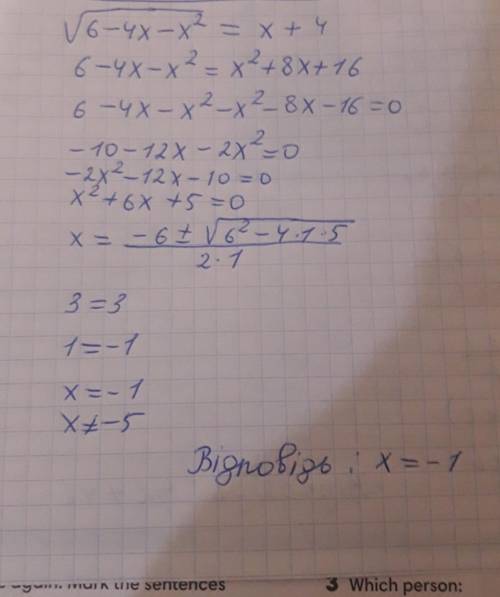 √(6-4x-x²) = x+4
6-4x-x² = x²+8x+16
6-4x-x²-x²-8x-16=0
-10-12x-2x²=0
-2x²-12x-10=0
x²+6x+5=0
x = (-6±√(6²-4·1·5))/(2·1)
3=3
1=-1
x=-1
x≠-5
Відповідь: x=-1
again. Mark the sentences
3 Which person: